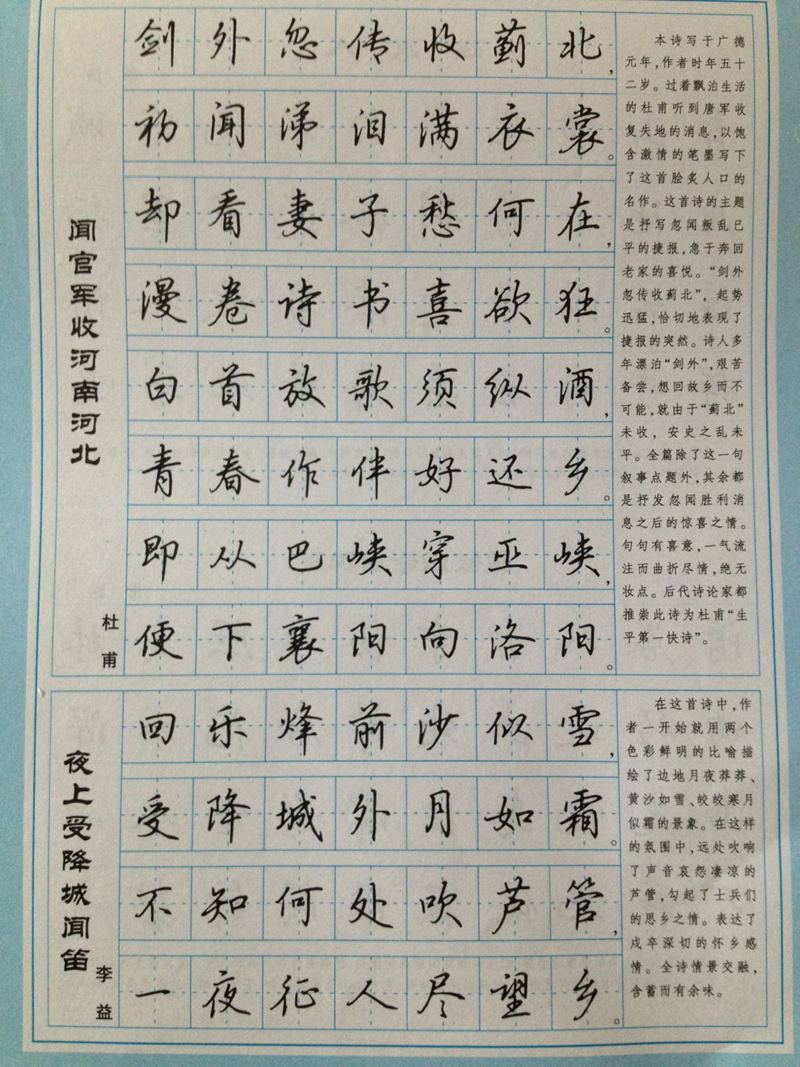 闻官军收河南河北
杜甫
剑外忽传收蓟北,
初闻涕泪满衣裳。
却看妻子愁何在,
漫卷诗书喜欲狂。
白首放歌须纵酒,
青春作伴好还乡。
即从巴峡穿巫峡,
便下襄阳向洛阳。
本诗写于广德
元年,作者时年五十
二岁。过着飘泊生活
的杜甫听到唐军收
复失地的消息,以饱
含激情的笔墨写下
了这首脍炙人口的
名作。这首诗的主题
是抒写忽闻叛乱已
平的捷报,急于奔回
老家的喜悦。“剑外
忽传收蓟北”,起势
迅猛,恰切地表现了
捷报的突然。诗人多
年漂泊“剑外”,艰苦
备尝,想回故乡而不
可能,就由于“蓟北”
未收,安史之乱未
平。全篇除了这一句
叙事点题外,其余都
是抒发忽闻胜利消
息之后的惊喜之情。
句句有喜意,一气流
注而曲折尽情,绝无
妆点。后代诗论家都
推崇此诗为杜甫“生
平第一快诗”。
夜上受降城闻笛
李益
回乐烽前沙似雪,
受降城外月如霜。
不知何处吹芦管,
一夜征人尽望乡。
在这首诗中,作
者一开始就用两个
色彩鲜明的比喻描
绘了边地月夜莽莽、
黄沙如雪、皎皎寒月
似霜的景象。在这样
的氛围中,远处吹响
了声音哀怨凄凉的
芦管,勾起了士兵们
的思乡之情。表达了
戍卒深切的怀乡感
情。全诗情景交融,
含蓄而有余味。